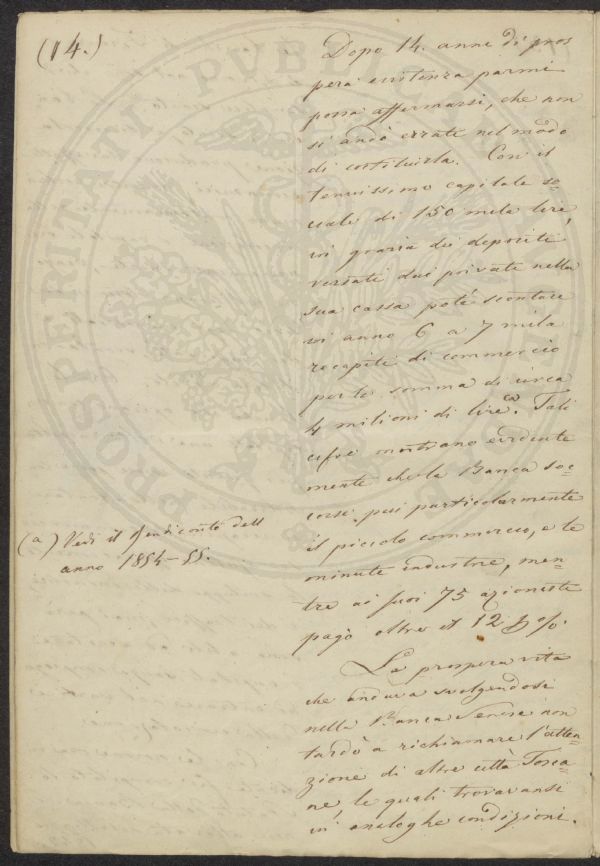 (14.)
Dopo 14. anni di pros
pera esistenza parmi
possa affermarsi, che non
si andò errati nel modo
di costituirla. Con il
tenuissimo capitale so=
ciale di 150 mila lire,
in grazia dei depositi
versati dai privati nella
sua cassa potè scontare
in anno 6 a 7 mila
recapiti di commercio
per la somma di circa
4 milioni di lire (a). Tali
cifre mostrano evidente
mente che la Banca soc=
corse più particolarmente
il piccolo commercio, e le
minute industrie, men=
tre ai suoi 75 azionisti
pagò oltre il 12 p%.
(a) Vedi il Rendiconto dell
anno 1854-55.
La prospera vita
che andava svolgendosi
nella Banca Senese non
tardò a richiamare l'atten=
zione di altre città Tosca=
ne, le quali trovavansi
in analoghe condizioni.
PROSPERITATI PUBL